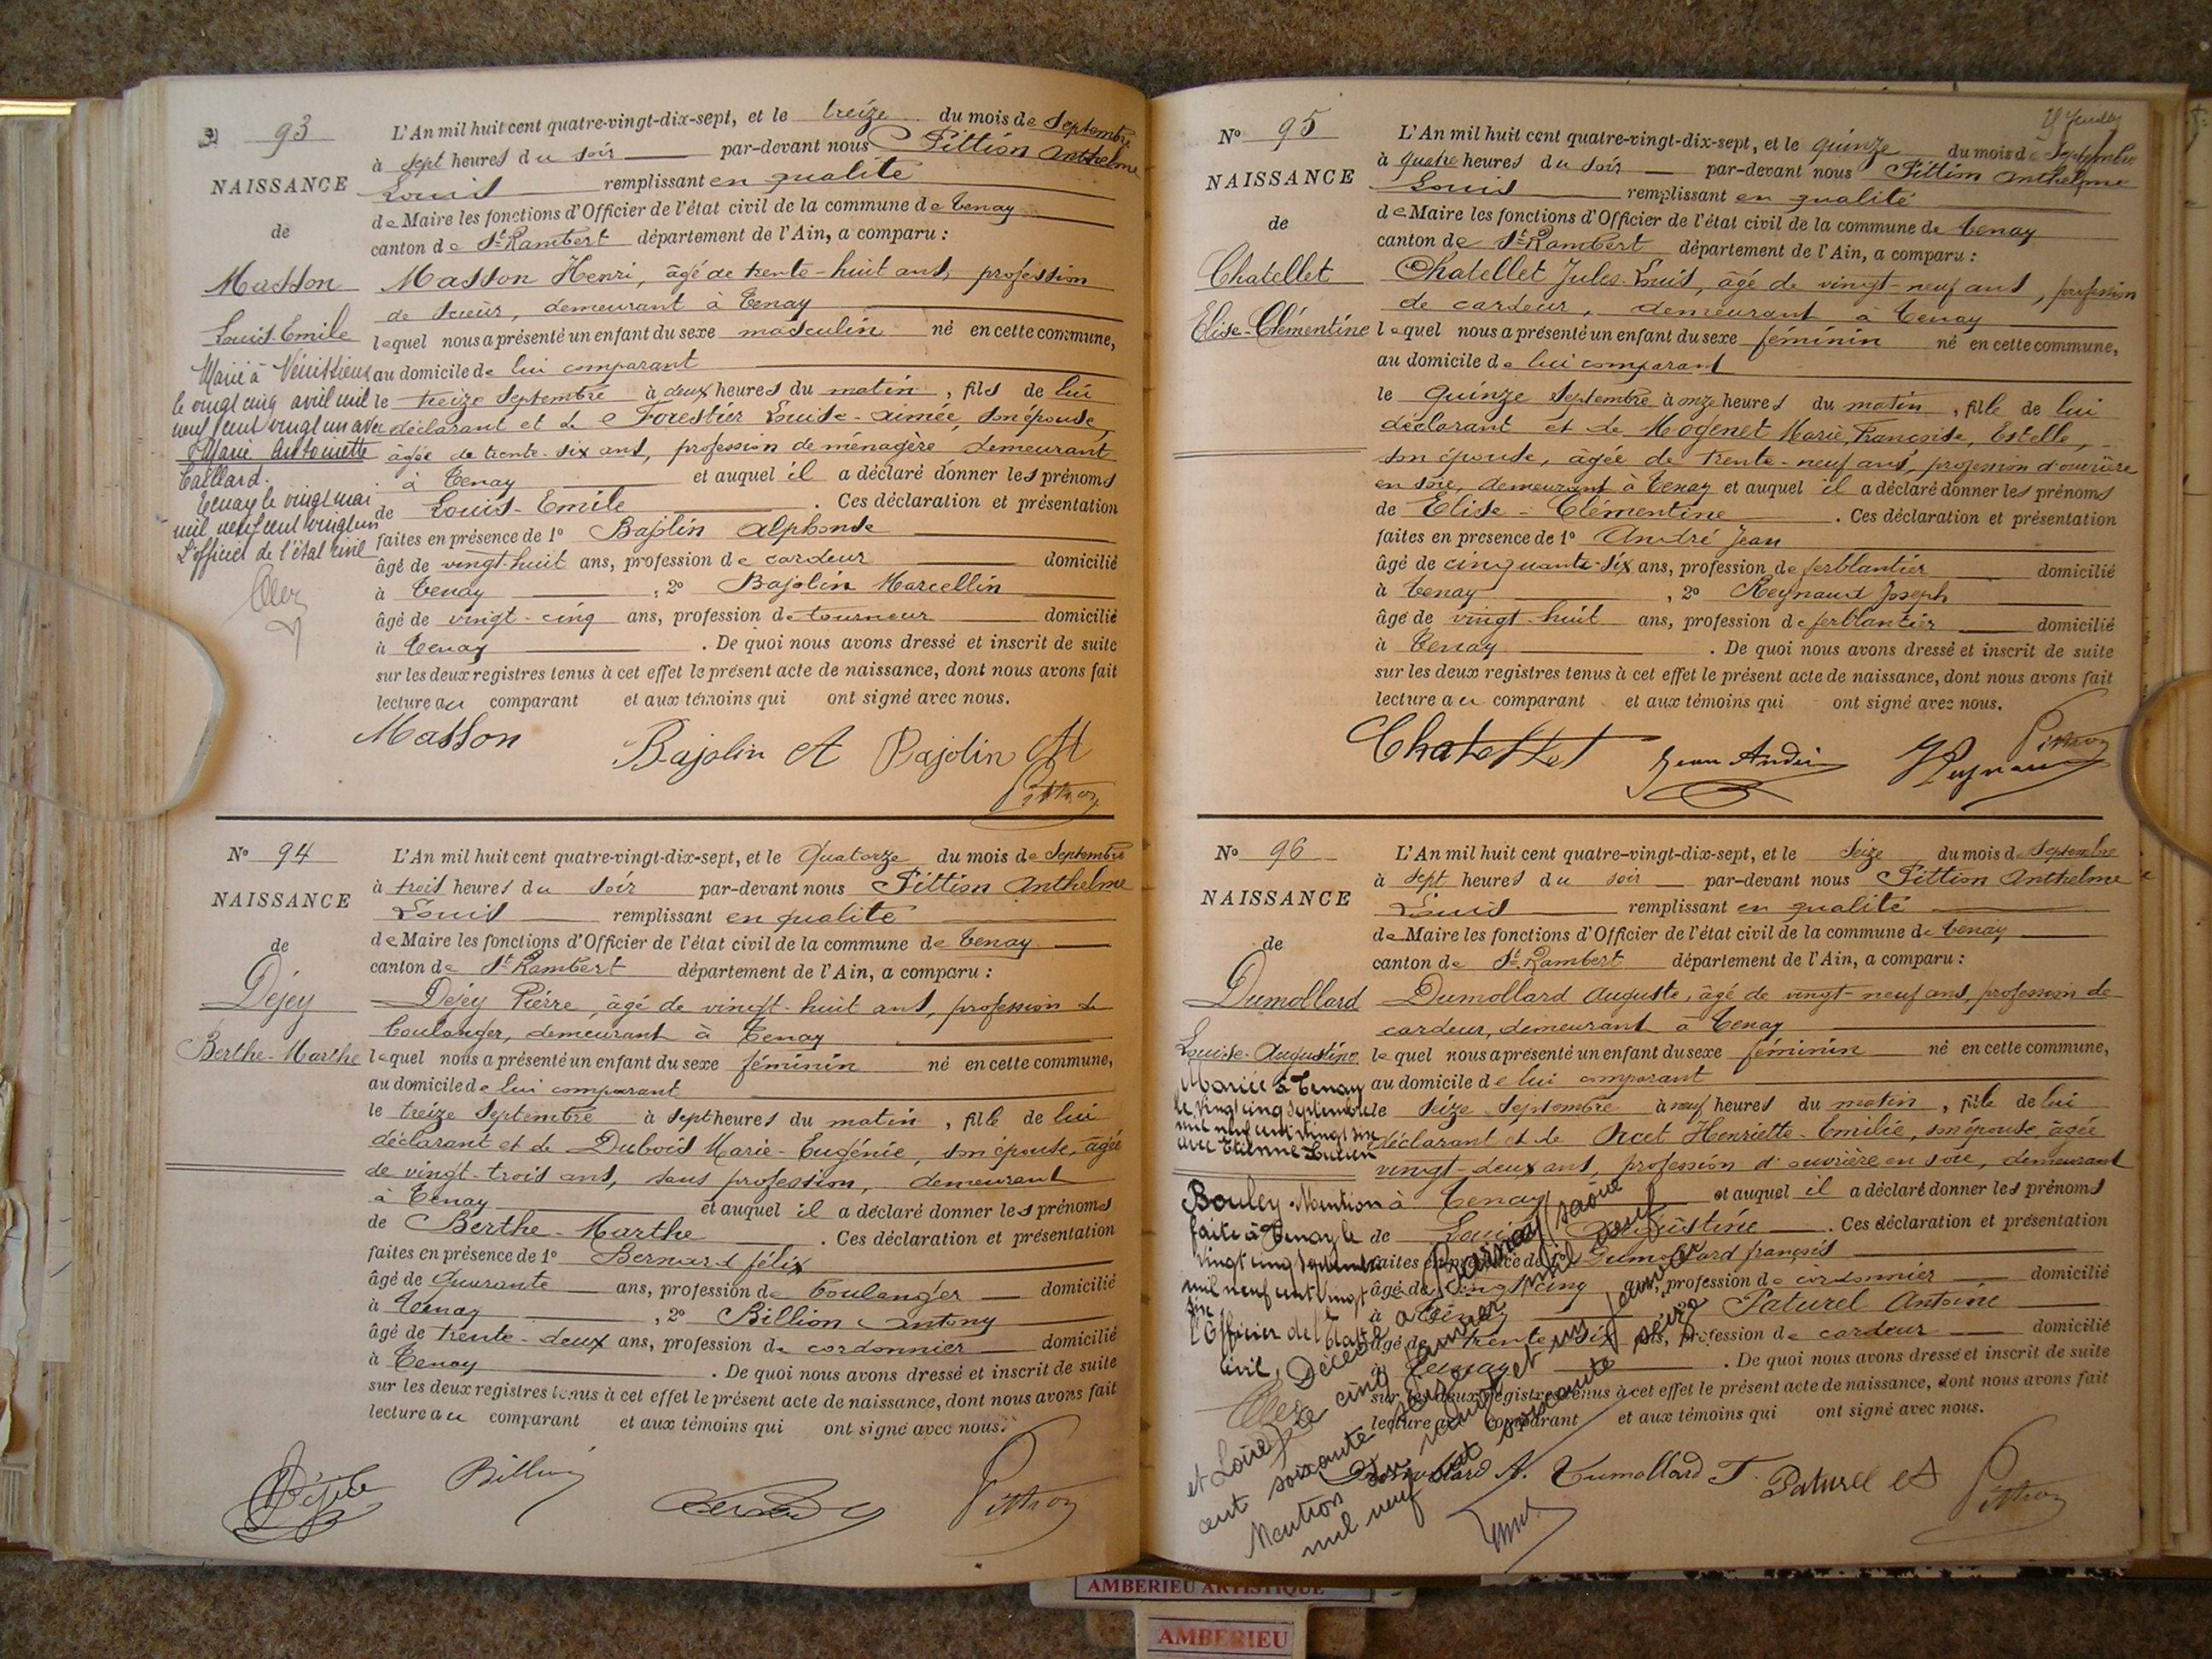 93
L'An mil huit cent quatre-vingt-dix-sept, et le treize du mois de Septembre
à sept heures du soir par-devant nous Pittion Anthelme
NAISSANCE
Louis remplissant en qualité
de Maire les fonctions d'Officier de l'état civil de la commune de Tenay
de
canton de St Rambert département de l'Ain, a comparu :
Masson
Masson Henri, âgé de trente-huit ans, profession
de scieur, demeurant à Tenay
Louis-Emile
lequel nous a présenté un enfant du sexe masculin né en cette commune,
au domicile de lui comparant
le treize Septembre à deux heures du matin, fils de lui
déclarant et de Forestier Louise-aimée, son épouse,
âgée de trente-six ans, profession de ménagère demeurant
à Tenay et auquel il a déclaré donner les prénoms
de Louis-Emile. Ces déclaration et présentation
faites en présence de 1º Bajolin Alphonse
âgé de vingt-huit ans, profession de cardeur domicilié
à Tenay, 2º Bajolin Marcellin
âgé de vingt-cinq ans, profession de tourneur domicilié
à Tenay. De quoi nous avons dressé et inscrit de suite
sur les deux registres tenus à cet effet le présent acte de naissance, dont nous avons fait
lecture au comparant et aux témoins qui ont signé avec nous.
Marié à Vénissieux
le vingt cinq avril mil
neuf cent vingt un avec
Marie Antoinette
Taillard.
Tenay le vingt mai
mil neuf cent vingt un
L'officier de l'état civil
Masson Bajolin A Bajolin M
Pittion
Nº 94
L'An mil huit cent quatre-vingt-dix-sept, et le Quatorze du mois de Septembre
à trois heures du soir par-devant nous Pittion Anthelme
NAISSANCE
Louis remplissant en qualité
de Maire les fonctions d'Officier de l'état civil de la commune de Tenay
de
canton de St Rambert département de l'Ain, a comparu :
Dejey
Dejey Pierre, âgé de vingt-huit ans, profession de
boulanger, demeurant à Tenay
Berthe-Marthe
lequel nous a présenté un enfant du sexe féminin né en cette commune,
au domicile de lui comparant
le treize Septembre à sept heures du matin, fille de lui
déclarant et de Dubois Marie-Eugénie, son épouse, âgée
de vingt-trois ans, sans profession, demeurant
à Tenay et auquel il a déclaré donner les prénoms
de Berthe-Marthe. Ces déclaration et présentation
faites en présence de 1º Bernard félix
âgé de quarante ans, profession de boulanger domicilié
à Tenay, 2º Billion Antony
âgé de trente-deux ans, profession de cordonnier domicilié
à Tenay. De quoi nous avons dressé et inscrit de suite
sur les deux registres tenus à cet effet le présent acte de naissance, dont nous avons fait
lecture au comparant et aux témoins qui ont signé avec nous.
Billion Pittion
Nº 95
L'An mil huit cent quatre-vingt-dix-sept, et le quinze du mois de Septembre
à quatre heures du soir par-devant nous Pittion Anthelme
NAISSANCE
Louis remplissant en qualité
de Maire les fonctions d'Officier de l'état civil de la commune de Tenay
de
canton de St Rambert département de l'Ain, a comparu :
Chatellet
Chatellet Jules-Louis, âgé de vingt-neuf ans, profession
de cardeur, demeurant à Tenay
Elise-Clémentine
lequel nous a présenté un enfant du sexe féminin né en cette commune,
au domicile de lui comparant
le quinze Septembre à onze heures du matin, fille de lui
déclarant et de Mogenet Marie, Françoise, Estelle,
son épouse, âgée de trente-neuf ans, profession d'ouvrière
en soie, demeurant à Tenay et auquel il a déclaré donner les prénoms
de Elise-Clémentine. Ces déclaration et présentation
faites en présence de 1º André Jean
âgé de cinquante-six ans, profession de ferblantier domicilié
à Tenay, 2º Reynaud Joseph
âgé de vingt-huit ans, profession de ferblantier domicilié
à Tenay. De quoi nous avons dressé et inscrit de suite
sur les deux registres tenus à cet effet le présent acte de naissance, dont nous avons fait
lecture au comparant et aux témoins qui ont signé avec nous.
Chatellet Jean André Reynaud Pittion
Nº 96
L'An mil huit cent quatre-vingt-dix-sept, et le Seize du mois de Septembre
à sept heures du soir par-devant nous Pittion Anthelme
NAISSANCE
Louis remplissant en qualité
de Maire les fonctions d'Officier de l'état civil de la commune de Tenay
de
canton de St Rambert département de l'Ain, a comparu :
Dumollard
Dumollard Auguste, âgé de vingt-neuf ans, profession de
cardeur, demeurant à Tenay
Louise-Augustine
lequel nous a présenté un enfant du sexe féminin né en cette commune,
au domicile de lui comparant
le seize Septembre à neuf heures du matin, fille de lui
déclarant et de Orcet Henriette-Emilie, son épouse, âgée
vingt-deux ans, profession d'ouvrière en soie, demeurant
à Tenay et auquel il a déclaré donner les prénoms
de Louise Augustine. Ces déclaration et présentation
faites en présence de 1º Dumollard françois
âgé de vingt cinq ans, profession de cordonnier domicilié
à Tenay, 2º Paturel Antoine
âgé de trente six ans, profession de cardeur domicilié
à Tenay. De quoi nous avons dressé et inscrit de suite
sur les deux registres tenus à cet effet le présent acte de naissance, dont nous avons fait
lecture au comparant et aux témoins qui ont signé avec nous.
Mariée à Tenay
le vingt cinq septembre
mil neuf cent vingt six
avec Etienne-Lucien
Bouley. Mention
faite à Tenay le
vingt cinq septembre
mil neuf cent vingt
six
l'Officier de l'Etat
civil,
Décédée à (Saône
et Loire) le cinq janvier mil neuf
cent soixante seize
Mention du vingt et un janvier
mil neuf cent soixante seize
Dumollard A. Dumollard F. Paturel A Pittion
AMBERIEU ARTISTIQUE
AMBERIEU